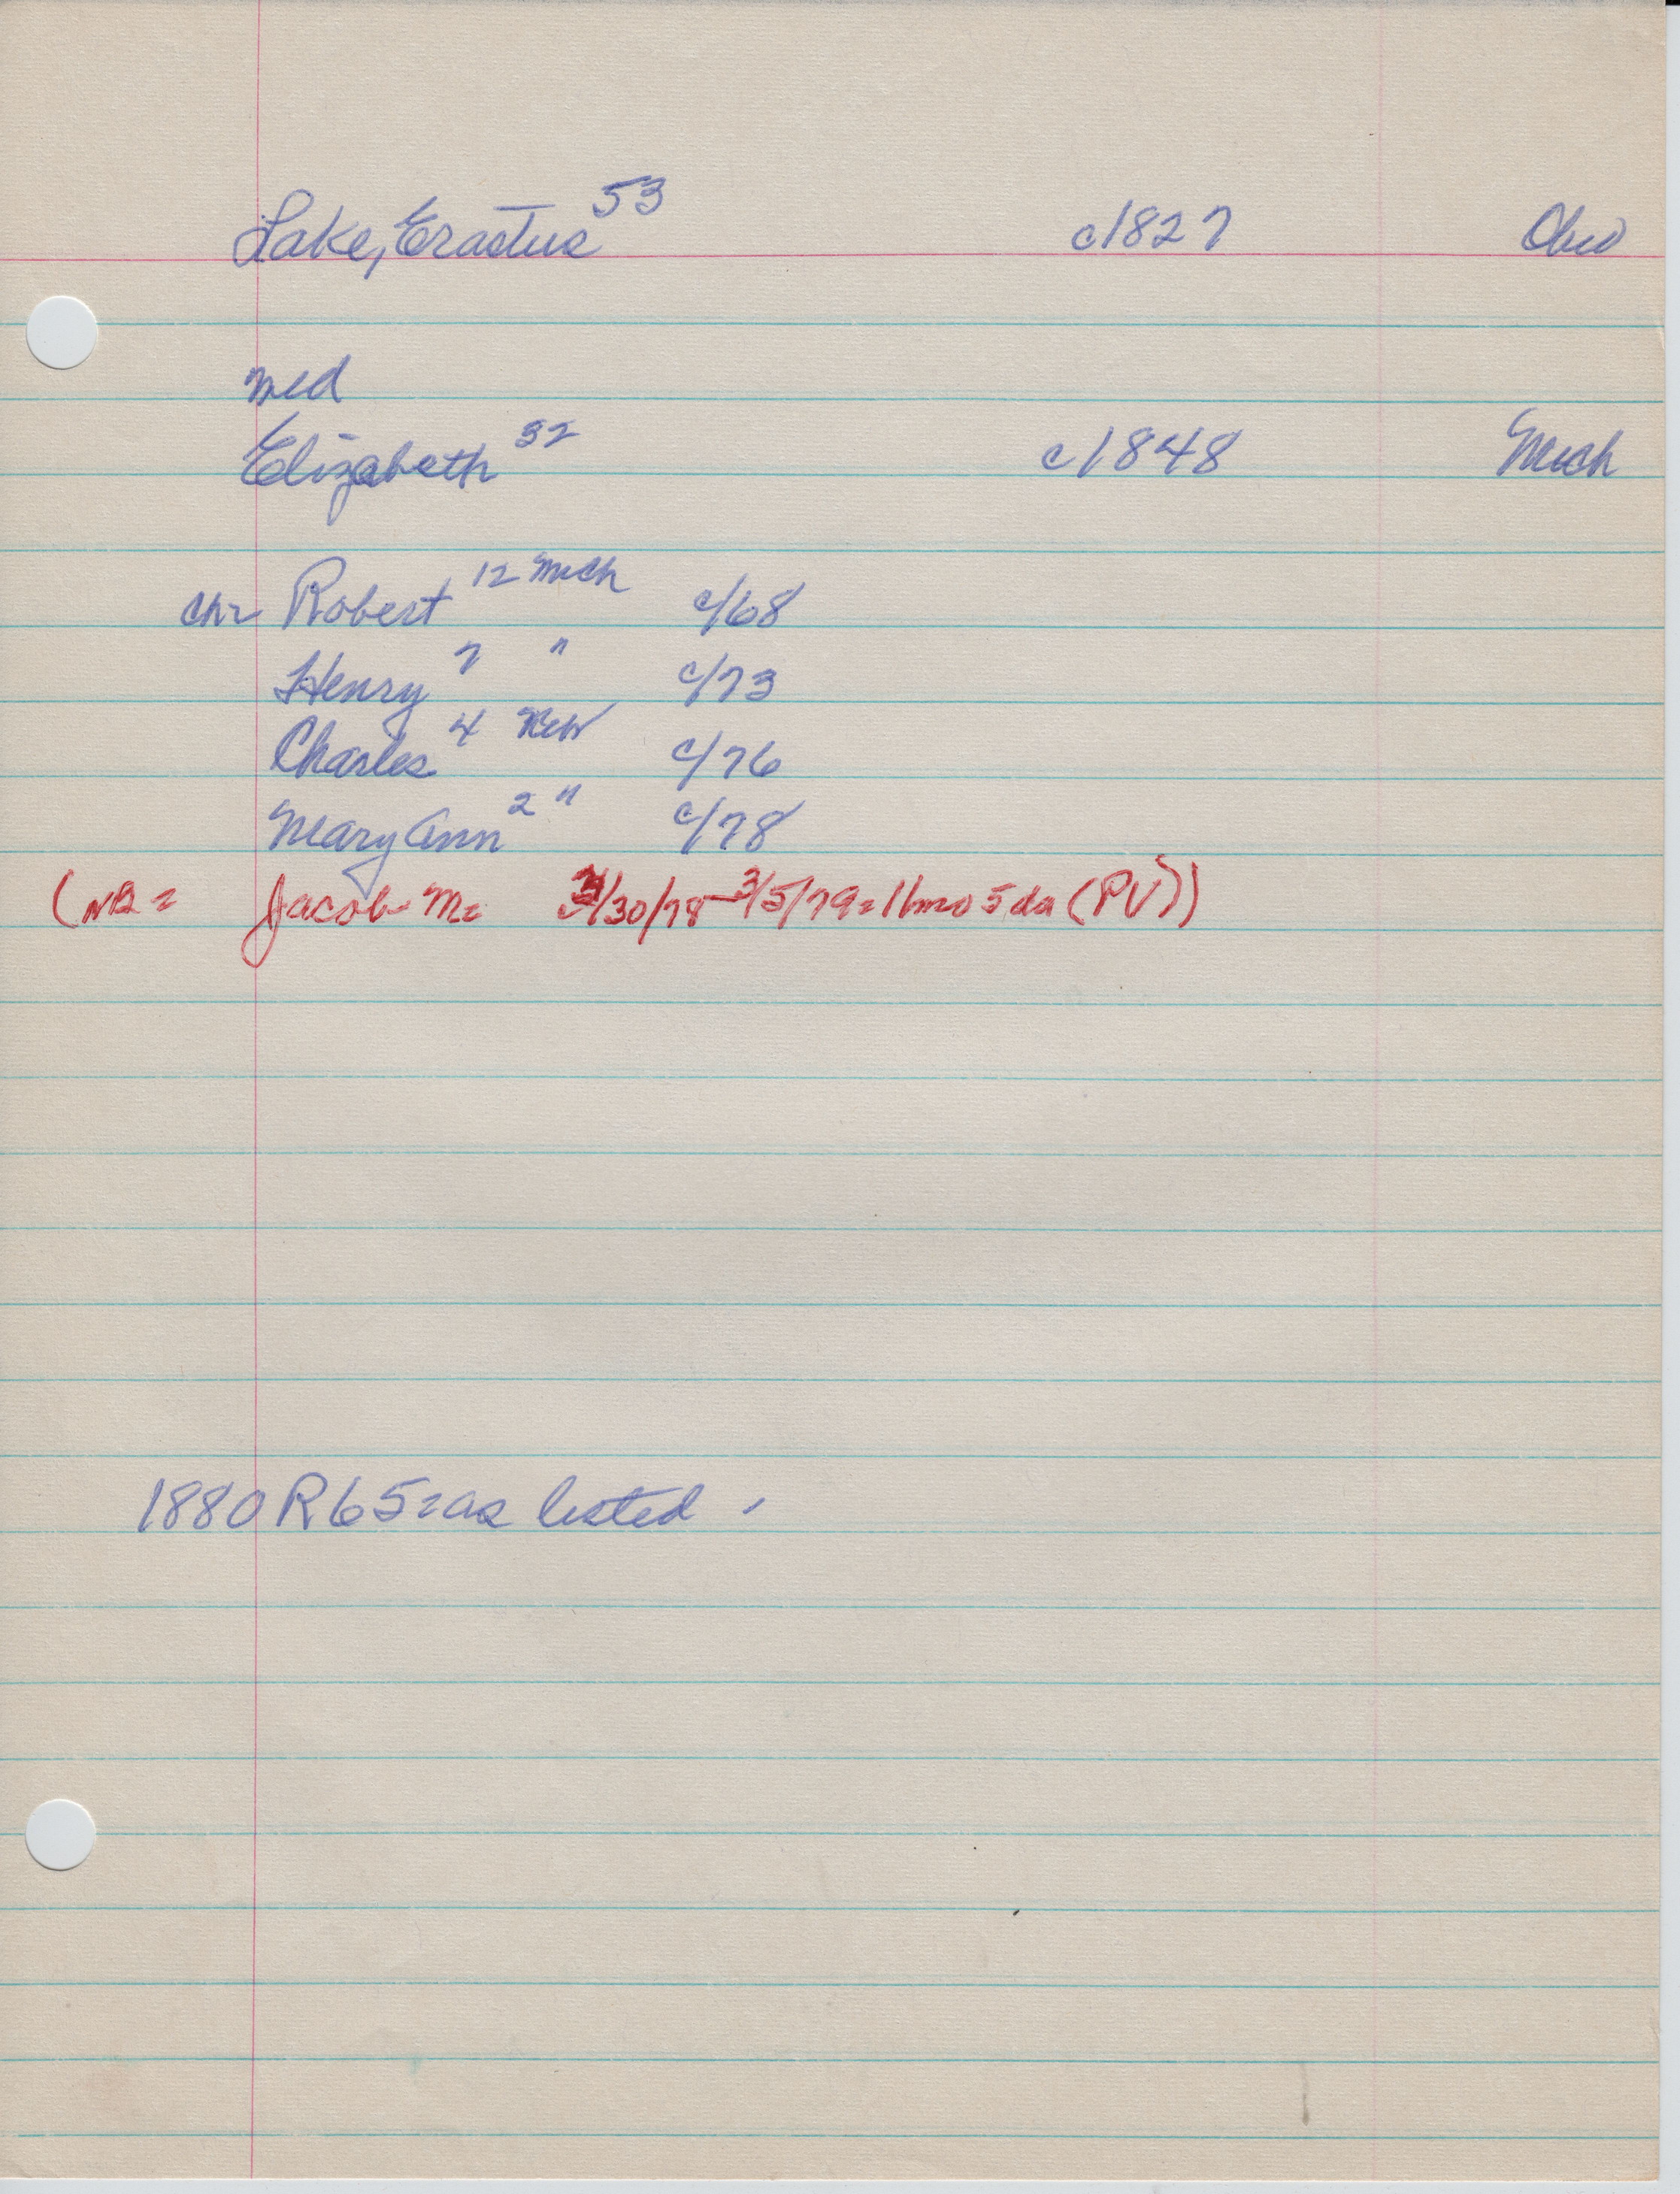 Lake, Erastus 53 c1827 Ohio
med
Elizabeth 32 c1848 Mich
ch= Robert 12 Mich c/68
Henry 7 " c/73
Charles 4 New c/76
Mary Ann 2 " c/78
(NB= Jacob M= /30/78-3/5/79=11mo 5da (PV))
1880 R65=as listed